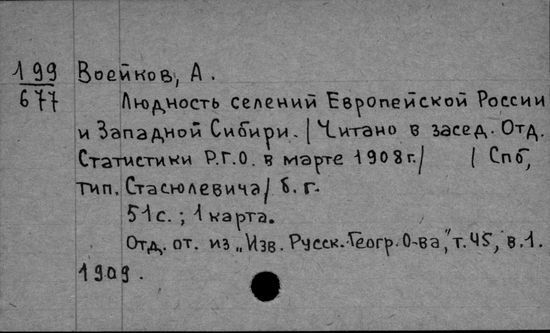 199 Воейков, А.
677 Людность селений Европейской России
и Западной Сибири. /Читано в засед. Отд.
Статистики Р.Г.О. в марте 1908г./ / Спб,
тип. Стасюлевича/ б. г.
51с. ; 1 карта.
Отд. от. из „Изв. Русск. Геогр. О-ва", т. 45, в. 1.
1909.